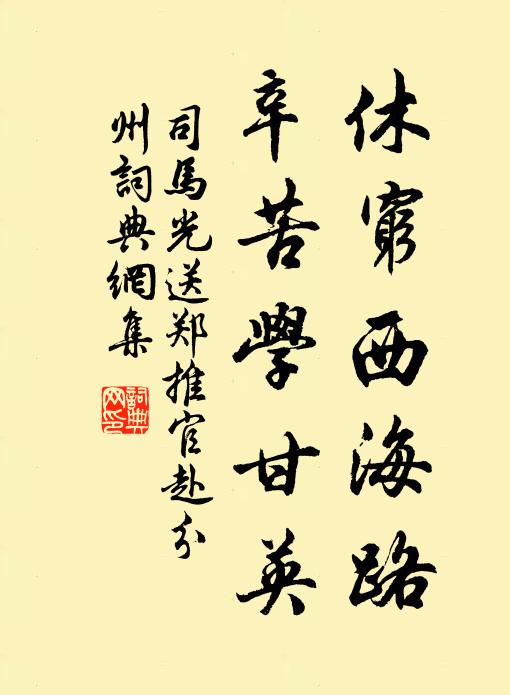 休窮西海路
辛苦學甘英
司馬光送郑推官赴汾
州詞典網集
詞典
网印